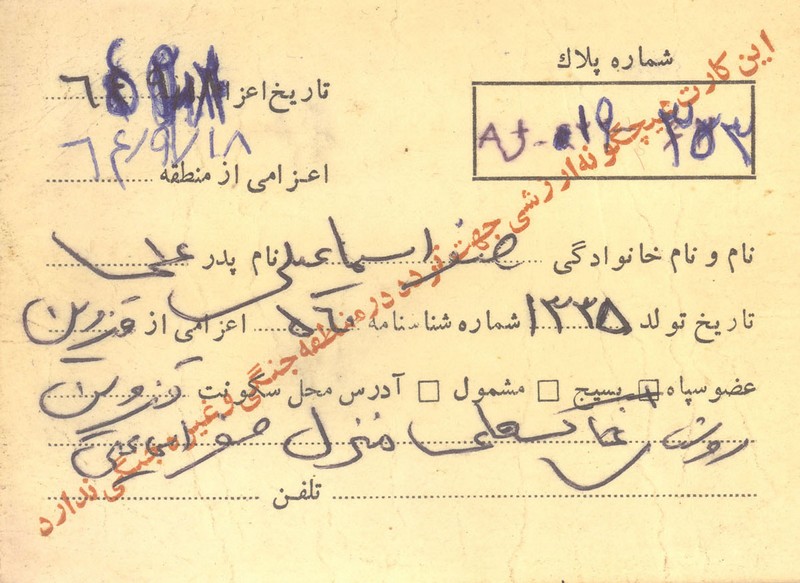 شماره پلاك
تاریخ اعزا ٦٤٩١٨
٦٤/٩/١٨
AJ-٣٥٣
اعزامی از منطقه
نام و نام خانوادگی صفر اسماعیلی نام پدر علی
تاریخ تولد ١٣٣٨ شماره شناسنامه ٥٦ اعزامی از قزوین
عضو سپاه بسیج مشمول آدرس محل سکونت قزوین
منزل صفر اسماعیلی
تلفن
این کارت هیچگونه ارزشی جهت تردد در منطقه جنگی و غیره جنگی ندارد